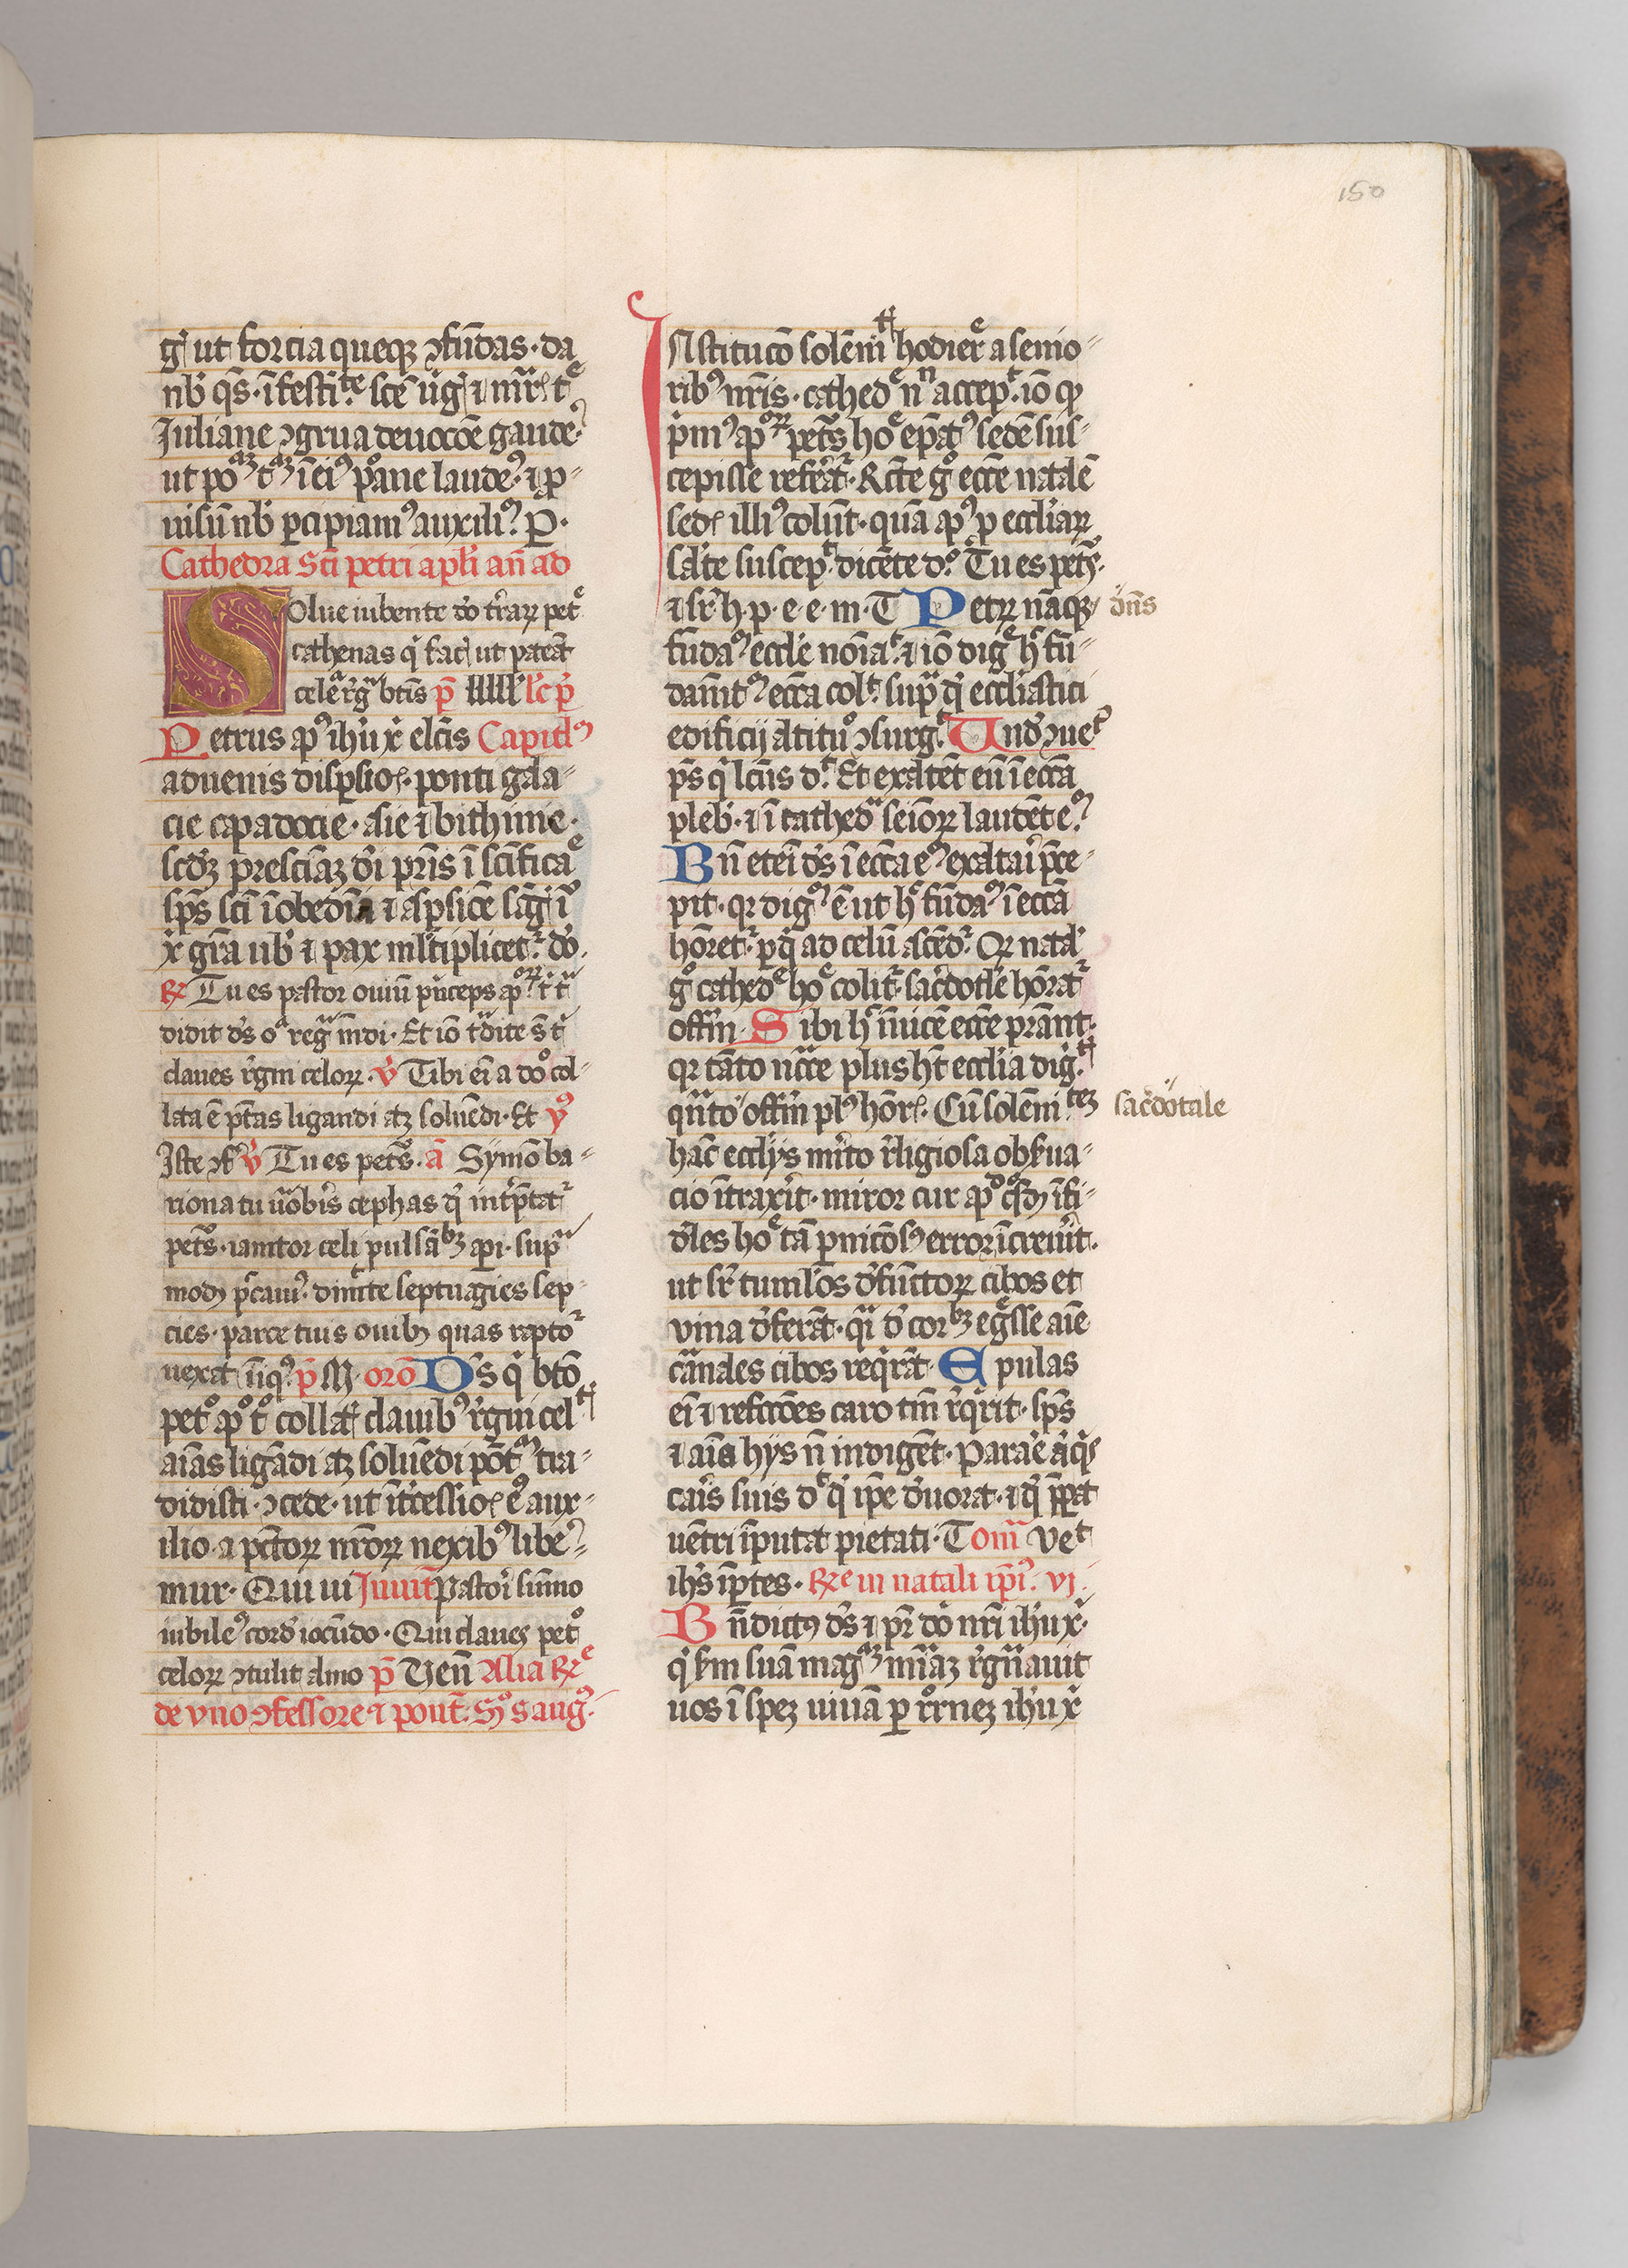 150
g ut forcia queqz ɔfūdas · da
nb̄ q̄s · ī festīte sce ū̓g̓ ⁊ mr̄is te
Juliane ɔgrua deuocōe gaude
ut poaz taz ī eiꝰ pōane laude ⁊ p
uisū nb̄ ꝑcipiamꝰ auxiliū P ·
Cathedra Sc̄i petri apl̄i an̄ ad
Solue iubente dō tr̄aꝝ petre
cathenas q̓ facis ut pateāt
celea r̄gna bt̄is p̄ lc̄ p̓
Petrus apꝰ ih̓u xp̓ el̄cis Capitlꝰ
aduenis disꝑsiois · ponti gala
cie capadocie · asie ⁊ bithinie ·
scd̄z presciāz dei pr̄is ī sc̄ificae
sp̄s sc̄i ī obediā ⁊ asꝑsiōe sāg̓ ī
x̓ gr̄a ub̓ ⁊ pax ml̓tiplicet̓ · dō ·
℞ Tu es pastor ouiū p̓nceps apoꝝ t̓ t̓
didit ds̄ oa regna mdi · Et iō t̓dite s̄t t̓
claues r̄gni celoꝝ · v̓ Tibi ei a dō col
lata ē pt̄as ligandi atz soluēdi · Et vo
Iste ɔf v̓ Tu es petrꝰ · a̅ Symō ba
riona tu uocabis cephas q̓ int̓p̄tat̓
petrꝰ · ianitor celi pulsātibz aperi · supra
modū p̄cauiꝰ · dimitte septuagies sep
cies · parce tuis ouibꝰ quas raptor
uexat iniqꝰ · p̄ M · orō Ds̄ q̓ btō
peto apo to collatis clauibꝰ r̄gni cel
aīas ligādi atz soluēdi pōt tra
didisti · ɔcede · ut īt̓cessiois eꝰ aux
ilio a pctōꝝ nr̄oꝝ nexibꝰ libe
mur · Qui ui Inuit̄ Pastori sūmo
iubileꝰ corde iocūdo · Qui claues peto
celoꝝ ɔtulit almo p̄ Ven̄ Alia ℞e
de vno ɔfessore ⁊ pont̄ · Smo s̄ aug ·
INstitucō solēni hodiere a senio
ribꝰ nr̄is · cathede nn accepit · iō qꝫ
p̓mꝰ apoꝝ petrꝰ hoe ep̄atꝰ sedē sus
cepisse refert̓ · Rc̄te go eccē natalē
sedis illiꝰ colūt · quā apꝰ p eccliaꝝ
salute suscepit · dicēte do · Tu es petrꝰ ·
⁊ sr̄ h · p · e · e · m · T Petrū nāqz dn̄s
fūdatū eccle noīat · ⁊ iō digne hc fū
damētū ecca colit · supra q̓ eccliastici
edificij altitudo ɔsurgit · Unde ɔuet
ps̄ q̓ lcūs dr · Et exaltēt eū ī ecca
plebis · ⁊ ī cathedra seioꝝ laudēt eū
Bn̄ etei ds̄ ī ecca eū exaltari p̄ce
pit · qꝛ dignū ē ut hc fūdatū ī ecca
hōret̓ · ꝑ q̓ ad celū ascēdit̓ · Qꝛ natal
go cathede hoe colit̓ · sac̓dotale hōrat̓
offim · Sibi hc īuicē ecce p̄stant
qꝛ tāto nc̄ce plus hr̄t ecclia digtatis
quāto offim plꝰ hōris · Cū solēnitatez sac̓dotale
hāc ecclijs m̄ito r̄ligiosa obserua
cio ītraxit · miror cur apd quosdā īfi
deles hoe tā ꝑnicōsꝰ error īcreuit ·
ut sr̄ tumlos defunctoꝝ cibos et
vina deferāt · qi de corbz egsse aīe
carnales cibos req̓rāt · Epulas
ei ⁊ refcōes caro tm̄ r̄q̓rit · sps̄
⁊ aīa hijs n̄ indigent · Parare aq̓s
caris suis dr q̓ ipe deuorat · ⁊ q̓
uentri īputat pietati · Tom Vet
ih̓s īp̄tes · ℞e in natali ip̓i · vj ·
Bn̄dictꝰ ds̄ ⁊ pr̄ dō nr̄i ih̓u x̓ ·
q̓ sm suā magaz miāz r̄gnauit
uos ī spez uiuā p r̄r̄nez ih̓u x̓